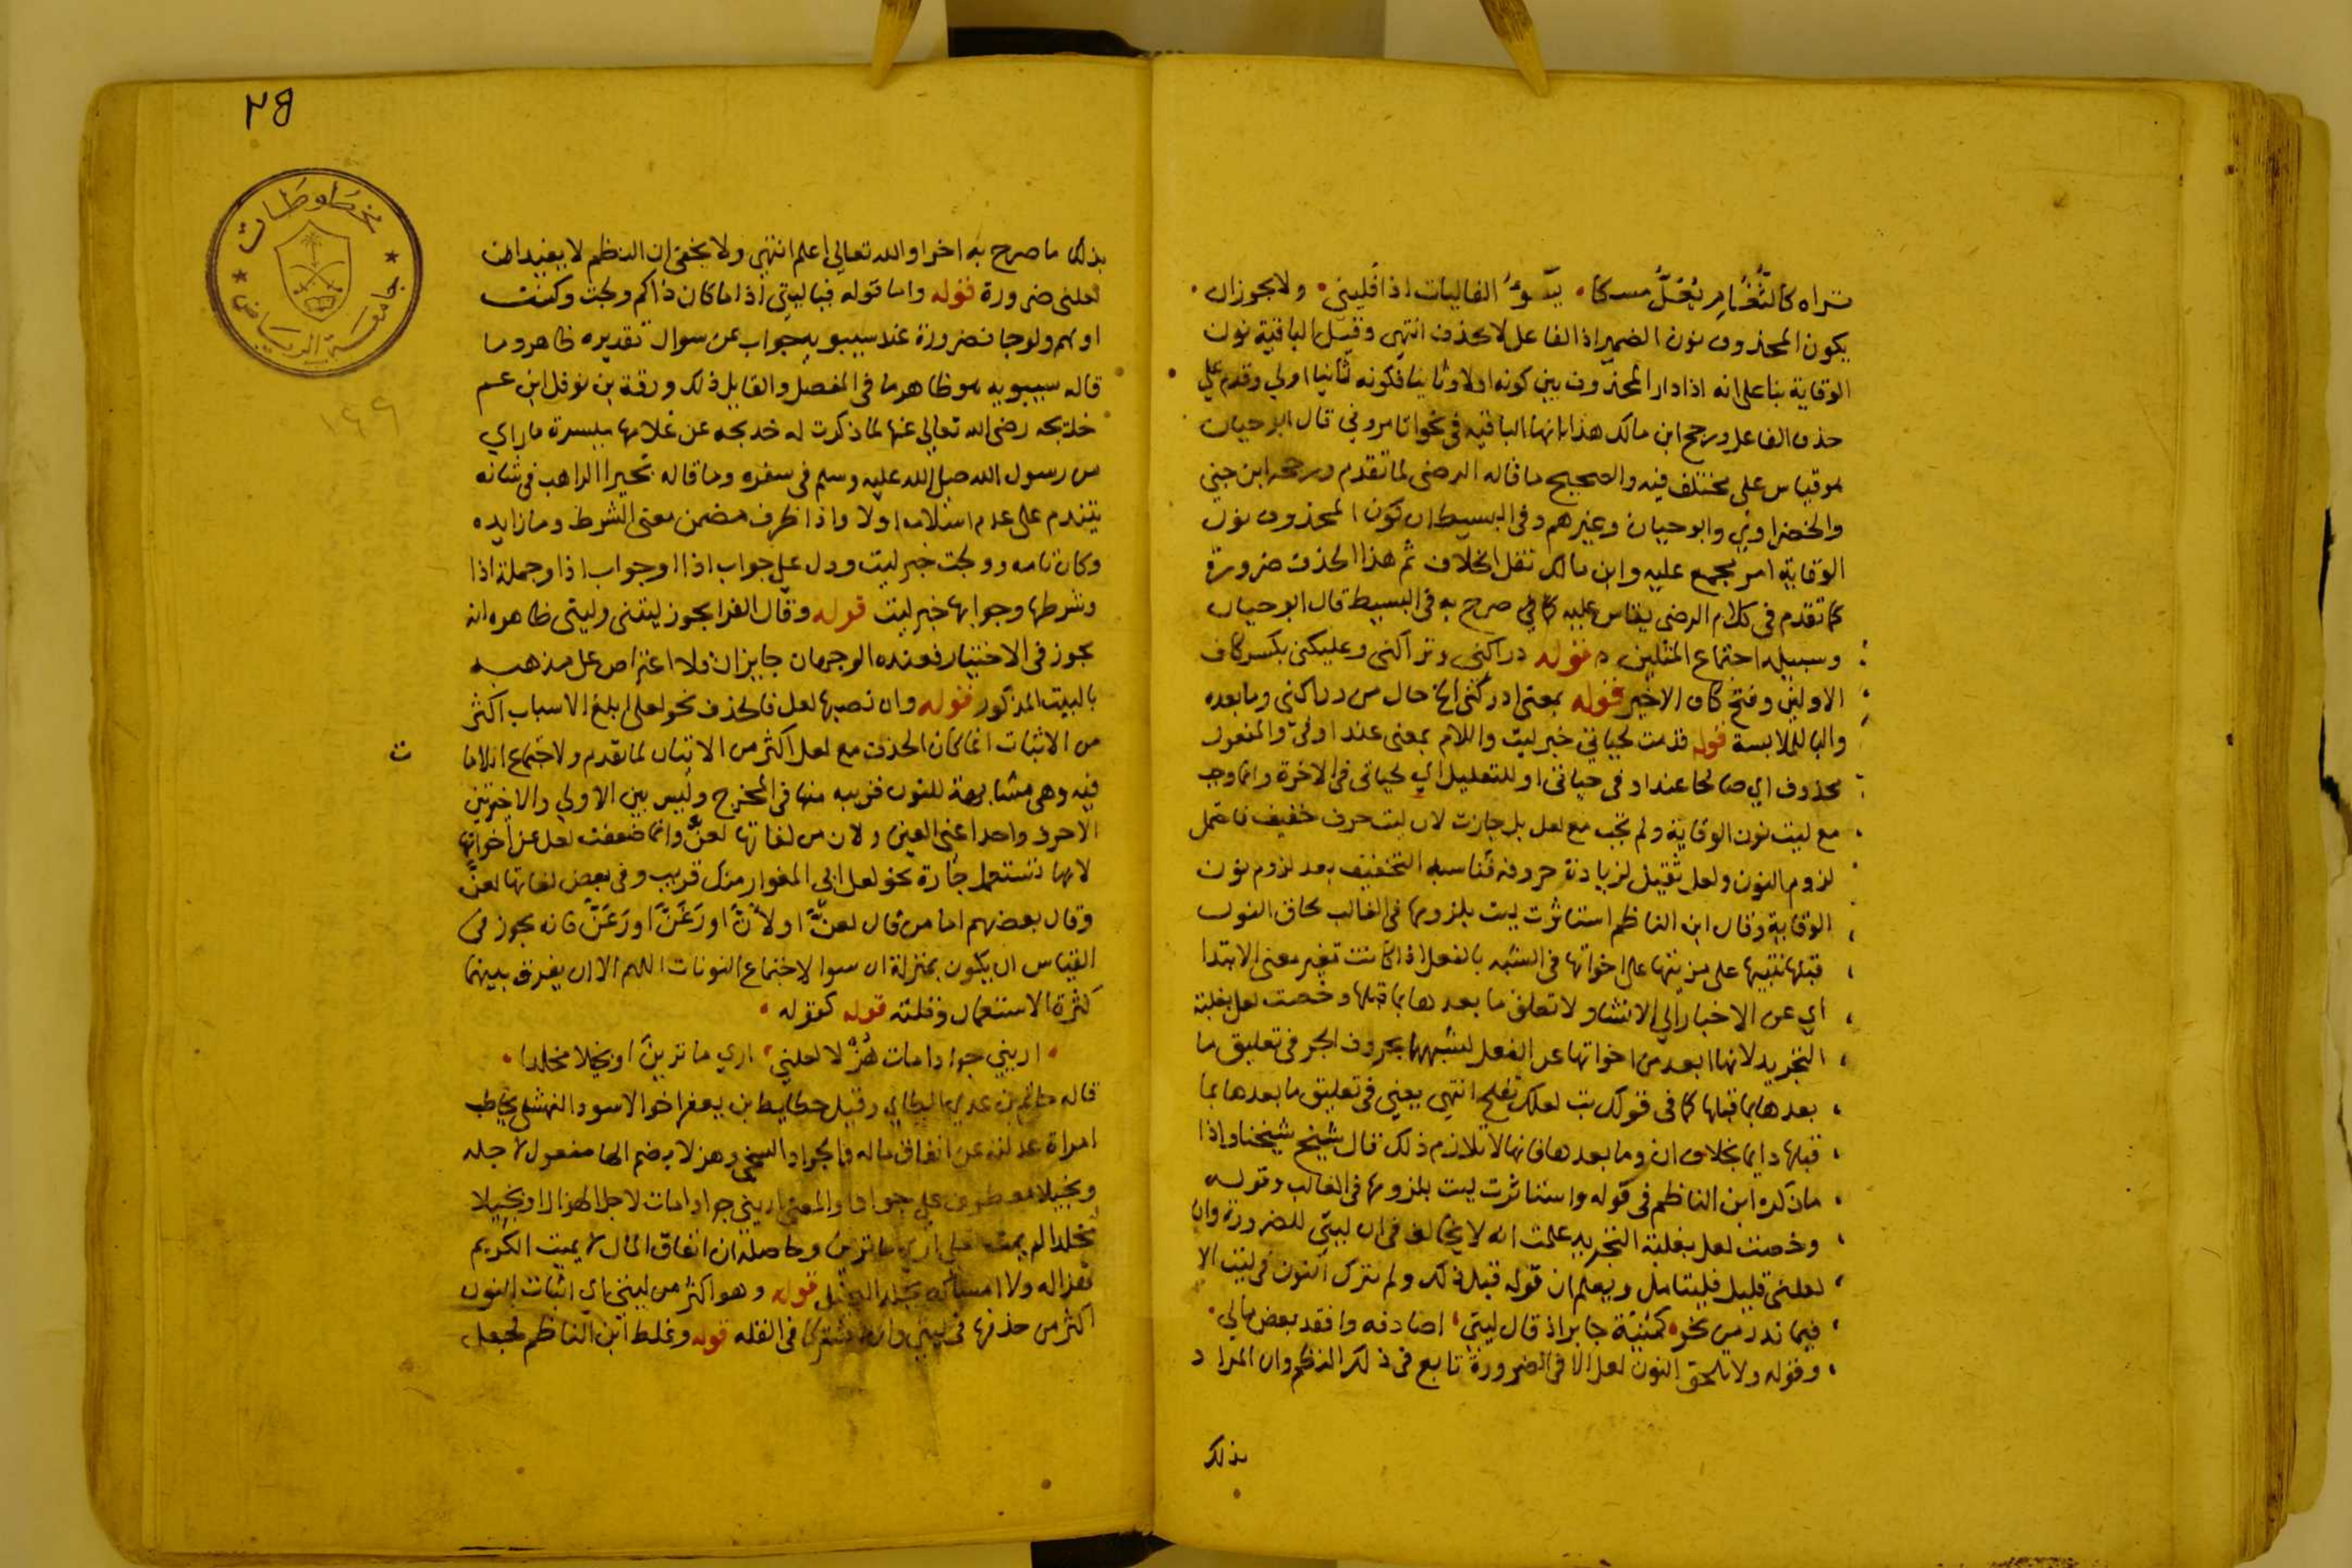 تراه كالثغام يعل مسكا يسوء الفاليات اذا فليني ولا يجوز ان
يكون المحذوف نون الضمير اذ الفاعل لا يحذف انتهى وقيل الباقية نون
الوقاية بنا على انه اذا دار المحذوف بين كونه اولا وثانيا فكونه ثانيا اولي وقدم علي
حذف الفاعل ورجح ابن مالك هذا بانها الباقيه في نحو اتامروني قال ابو حيان
هو قياس على مختلف فيه والصحيح ما قاله الرضى لما تقدم ورجحه ابن جني
والخضراوي وابو حيان وغيرهم وفي البسيط ان كون المحذوف نون
الوقاية امر مجمع عليه وابن مالك نقل الخلاف ثم هذا الحذف ضرورة
كما تقدم في كلام الرضى يقاس عليه كالي صرح به في البسيط قال ابو حيان
وسبيله اجتماع المثلين قوله دراكنى وتراكنى وعليكنى بكسر كاف
الاولين وفتح كاف الاخير قوله بمعنى ادركنى الخ حال من دراكنى وما بعده
والبا للملابسة قوله قدمت لحياتي خبر ليت واللام بمعنى عند او في والمفعول
محذوف اي صالحا عند او في حياتي او للتعليل اي لحياتى في الاخرة وانما وجب
مع ليت نون الوقاية ولم تجب مع لعل بل جازت لان ليت حرف خفيف فاحتمل
لزوم النون ولعل ثقيل لزيادة حروفه فناسبه التخفيف بعد لزوم نون
الوقاية وقال ابن الناظم استاثرت ليت بلزومها في الغالب لحاق النون
قبلها تنبيها على مزيتها على اخواتها في الشبه بالفعل اذ كانت تغير معنى الابتدا
اي عن الاخبار الي الانشا ولا تعلق ما بعدها بما قبلها وخصت لعل بغلبة
التجريد لانها ابعد من اخواتها عن الفعل لشبهها بحروف الجر في تعليق ما
بعدها بما قبلها كما في قولك تب لعلك تفلح انتهى يعني في تعليق ما بعدها بما
قبلها دايما بخلاف ان وما بعدها فانها لا تلازم ذلك قال شيخ شيخنا واذا
ما ذكره ابن الناظم في قوله واستاثرت ليت بلزومها في الغالب وقوله
وخصت لعل بغلبة التجريد علمت انه لا يخالف في ان ليتي للضرورة وان
لعلني قليل فليتامل ويعلم ان قوله قبل ذلك ولم تترك النون في ليت الا
فيما ندر من نحو كمنية جابر اذ قال ليتي اصادفه وافقد بعض مالي
وقوله ولا تلحق النون لعل الا في الضرورة تابع في ذلك النظم وان المراد
بذلك
٢٨
مخطوطات
جامعة الرياض
١٤٩
بذلك ما صرح به اخرا والله تعالي اعلم انتهى ولا يخفى ان النظم لا يفيد ان
لعلنى ضرورة قوله واما قوله فيا ليتي اذا ما كان ذاكم ولجت وكنت
اولهم ولوجا فضرورة عند سيبويه جواب عن سوال تقديره ظاهر وما
قاله سيبويه هو ظاهر ما في المفصل والقايل ذلك ورقة بن نوفل ابن عم
خديجه رضى الله تعالي عنها لما ذكرت له خديجه عن غلامها ميسرة ما راي
من رسول الله صلى الله عليه وسلم في سفره وما قاله بحيرا الراهب في شانه
يتندم على عدم اسلامه اولا واذا ظرف مضمن معنى الشرط وما زايده
وكان تامه وولجت خبر ليت ودل على جواب اذا او جواب اذا وجملة اذا
وشرطها وجوابها خبر ليت قوله وقال الفرا يجوز ليتنى وليتى ظاهره انه
يجوز في الاختيار فعنده الوجهان جايزان ولا اعتراض على مذهبه
بالبيت المذكور قوله وان نصبها لعل فالحذف نحو لعلي ابلغ الاسباب اكثر
من الاثبات انما كان الحذف مع لعل اكثر من الاثبات لما تقدم ولاجتماع اللامات
فيه وهي مشابهة للنون قريبه منها في المخرج وليس بين الاولي والاخيرتين
الا حرف واحد اعني العين ولان من لغاتها لعن وانما ضعفت لعل عن اخواتها
لانها تستعمل جارة نحو لعل ابي المغوار منك قريب وفي بعض لغاتها لعن
وقال بعضهم اما من قال لعن او لان او رعن او رغن فانه يجوز في
القياس ان يكون بمنزلة ان سوا لاجتماع النونات اللهم الا ان يفرق بينهما
كثرة الاستعمال وقلته قوله كقوله
اريني جوادا مات هزلا لعلني اري ما ترين او بخيلا مخلدا
قاله حاتم بن عدي الطاي وقيل حطايط بن يعفر اخو الاسود النهشلي يخاطب
امراة عذلته عن انفاق ماله والجواد السخي وهزلا بضم الها مفعول لاجله
وبخيلا معطوف على جوادا والمعنى اريني جوادا مات لاجل الهزال او بخيلا
مخلدا لم يمت لعلي اري ما ترين وحاصله ان انفاق المال لا يميت الكريم
هزاله ولا امساكه يخلد البخيل قوله وهو اكثر من ليتي اي اثبات النون
اكثر من حذفها في ليتي وان اشتركا في القله قوله وغلط ابن الناظم فجعل